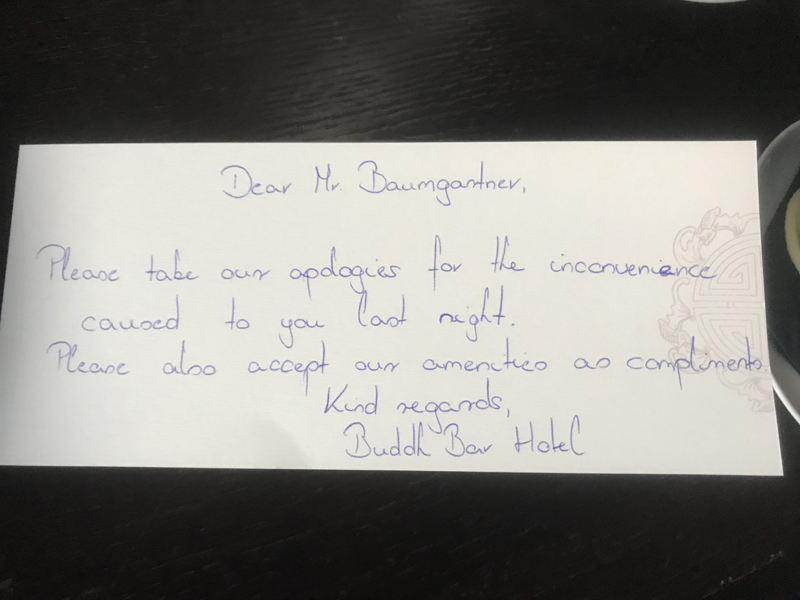 Dear Mr. Baumgartner,
Please take our apologies for the inconvenience
caused to you last night.
Please also accept our amenities as compliments
Kind regards,
Buddh Bar Hotel